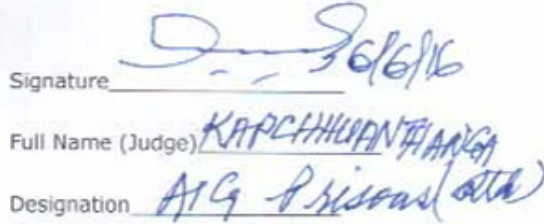 Signature 6/6/16
Full Name (Judge) KAPCHHUANTHANGA
Designation AIG Prisons